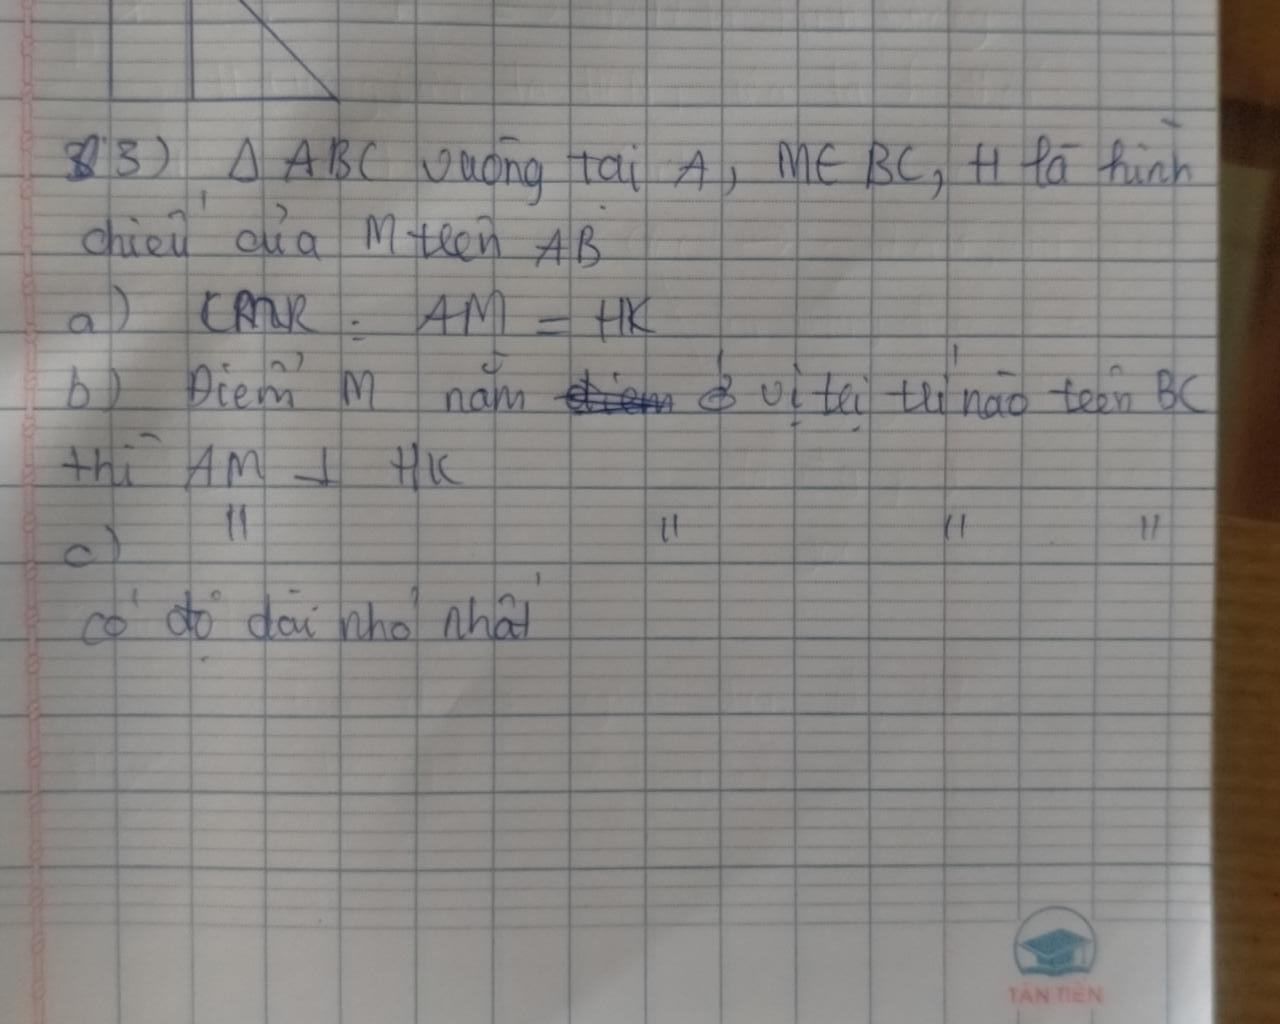 3) Δ ABC vuông tại A, M∈ BC, H là hình
chiếu của M trên AB
a) CMR : AM = HK
b) Điểm M nằm ở vị trí nào trên BC
thì AM ⊥ HK
c) " " " "
có độ dài nhỏ nhất
TÂN TIẾN